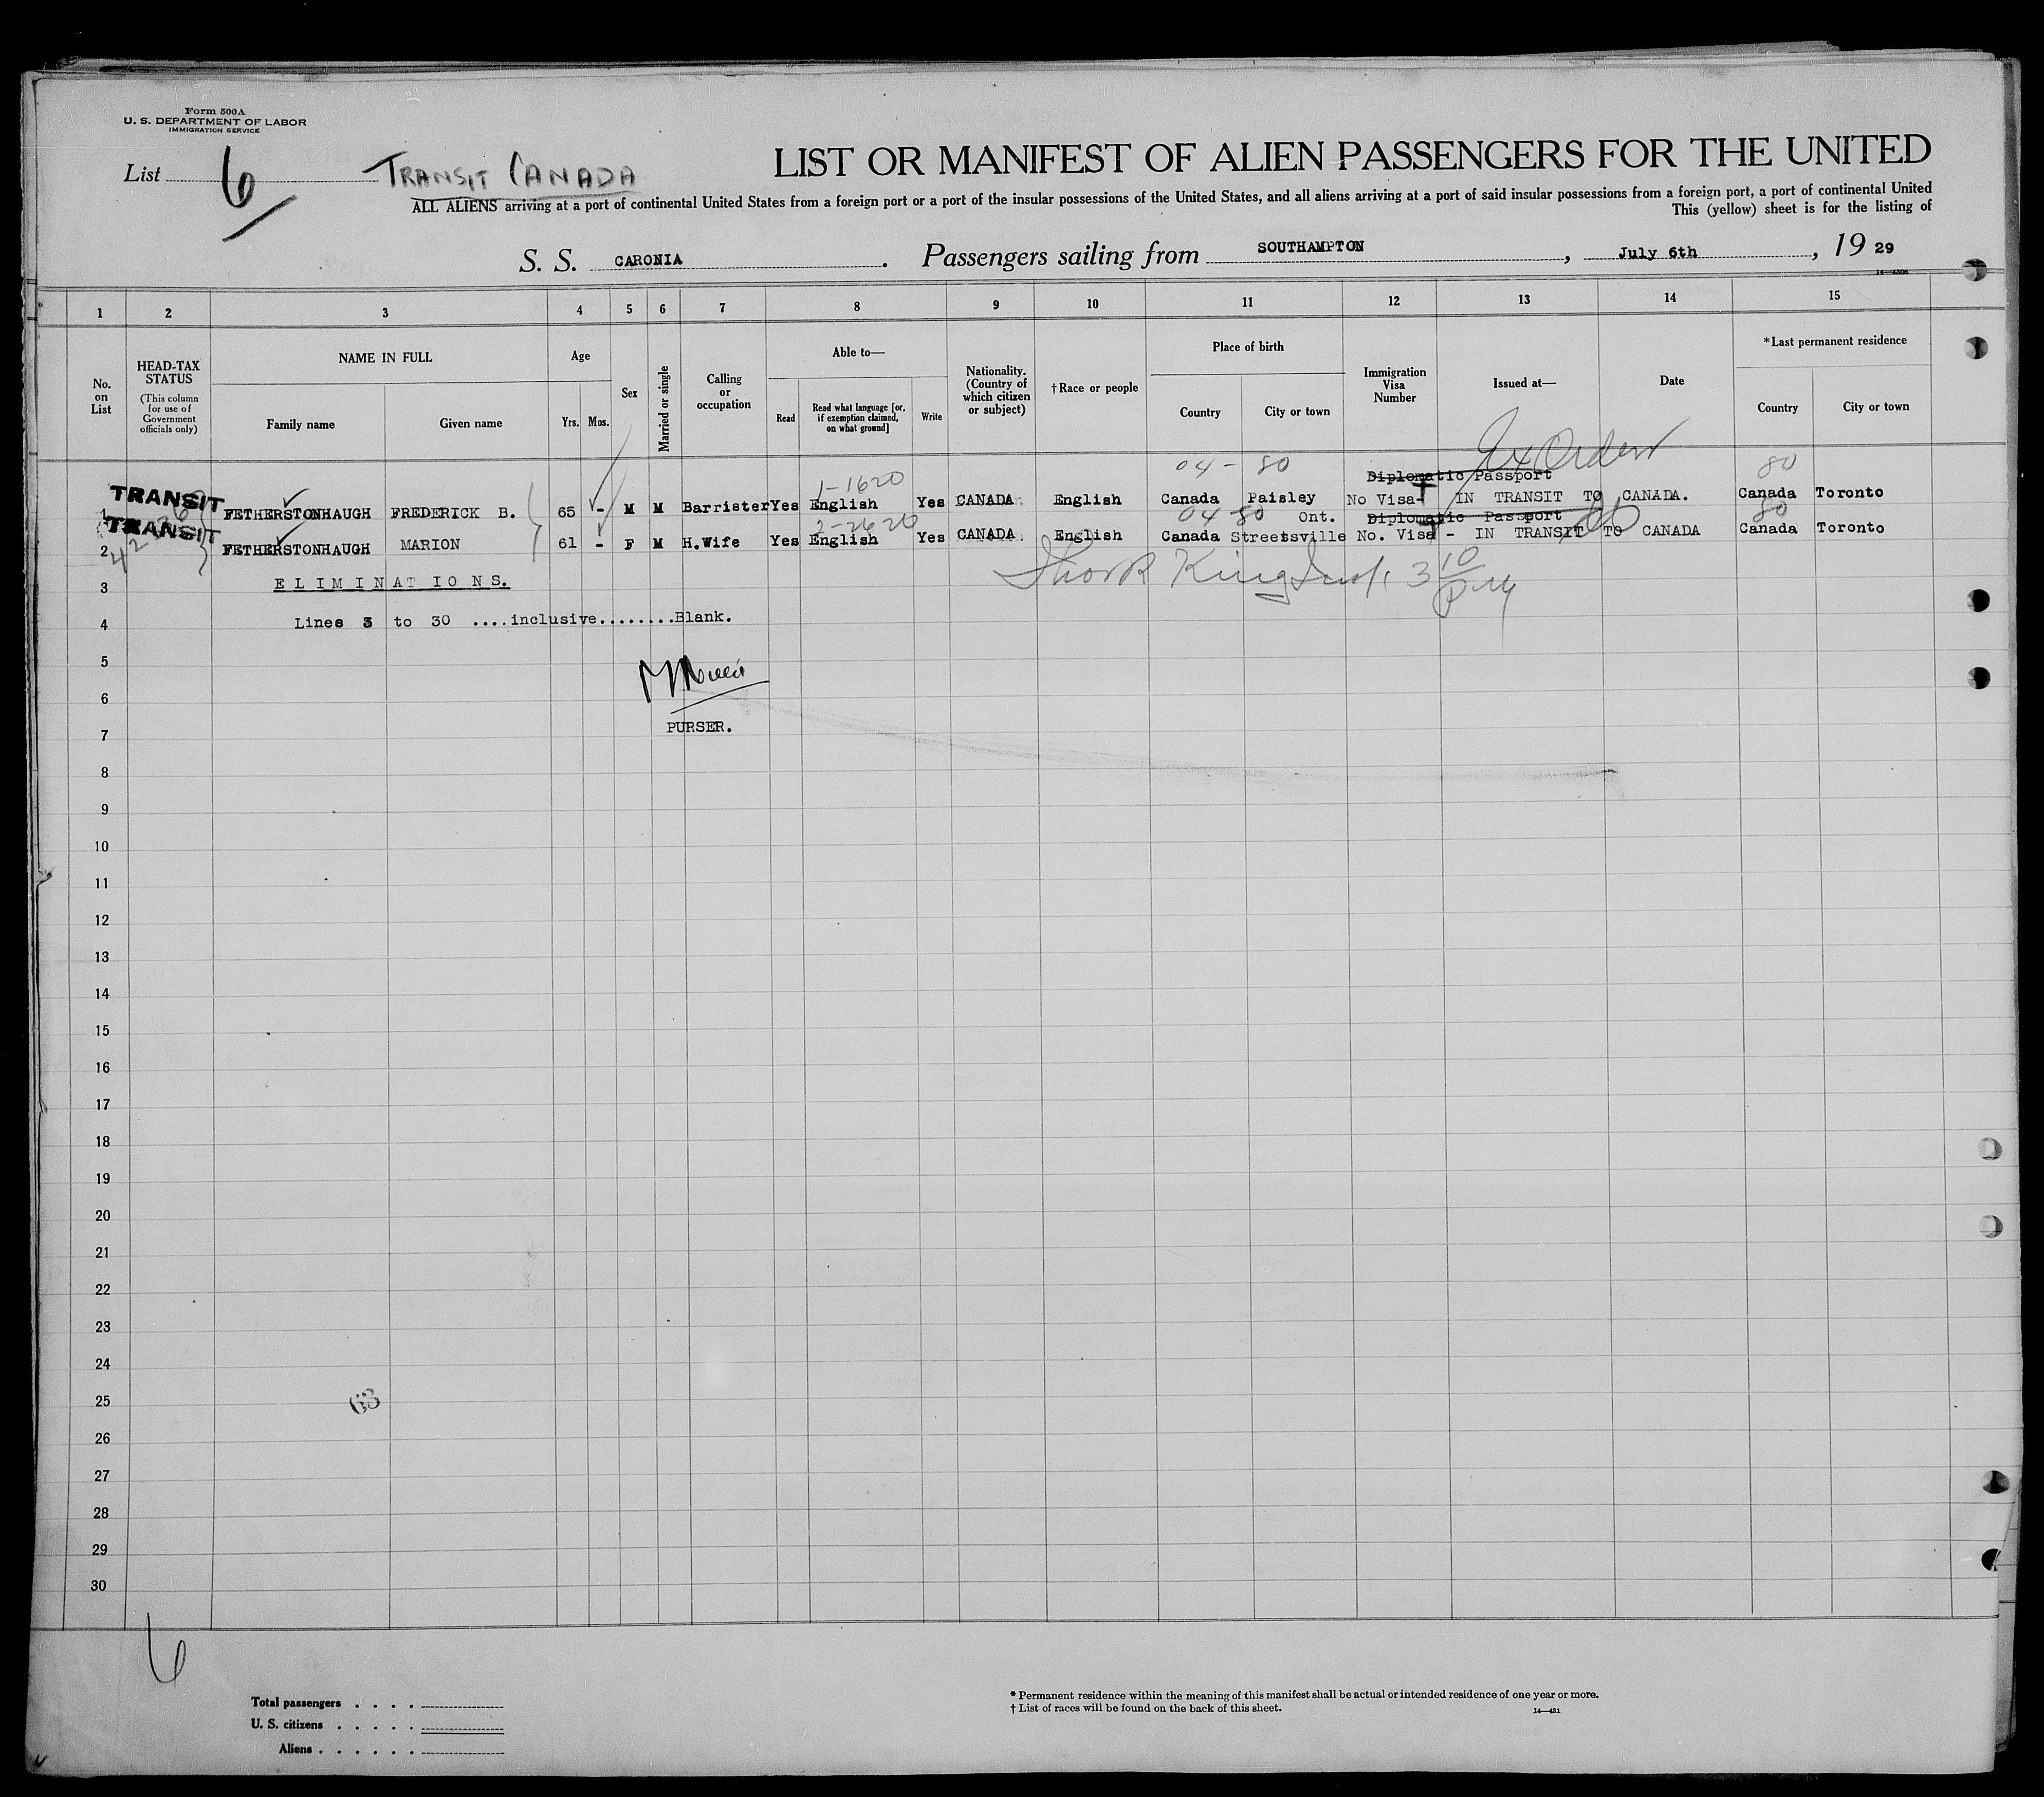 Form 500A
U. S. DEPARTMENT OF LABOR
IMMIGRATION SERVICE
List 6 TRANSIT CANADA
LIST OR MANIFEST OF ALIEN PASSENGERS FOR THE UNITED
ALL ALIENS arriving at a port of continental United States from a foreign port or a port of the insular possessions of the United States, and all aliens arriving at a port of said insular possessions from a foreign port, a port of continental United
This (yellow) sheet is for the listing of
S. S. CARONIA. Passengers sailing from SOUTHAMPTON, July 6th, 19 29
1 2 3 4 5 6 7 8 9 10 11 12 13 14 15
No. on List
HEAD-TAX STATUS (This column for use of Government officials only)
NAME IN FULL
Family name Given name
Age
Yrs. Mos.
Sex
Married or single
Calling or occupation
Able to—
Read
Read what language [or, if exemption claimed, on what ground]
Write
Nationality. (Country of which citizen or subject)
†Race or people
Place of birth
Country City or town
Immigration Visa Number
Issued at—
Date
*Last permanent residence
Country City or town
04 - 80 Ex Orders 80
1-1620 Diplomatic Passport
TRANSIT 1 FETHERSTONHAUGH FREDERICK B. 65 - M M Barrister Yes English Yes CANADA English Canada Paisley Ont. No Visa- IN TRANSIT TO CANADA. Canada Toronto
2-2620 04 80 Diplomatic Passport 80
TRANSIT 2 FETHERSTONHAUGH MARION 61 - F M H.Wife Yes English Yes CANADA English Canada Streetsville No. Visa - IN TRANSIT TO CANADA Canada Toronto
3 ELIMINATIONS. King 3 10 P.M
4 Lines 3 to 30 ....inclusive........Blank.
5
6
7 PURSER.
8
9
10
11
12
13
14
15
16
17
18
19
20
21
22
23
24
25 63
26
27
28
29
30
6
Total passengers . . . .
U. S. citizens . . . . .
Aliens . . . . . .
* Permanent residence within the meaning of this manifest shall be actual or intended residence of one year or more.
† List of races will be found on the back of this sheet.
14—431